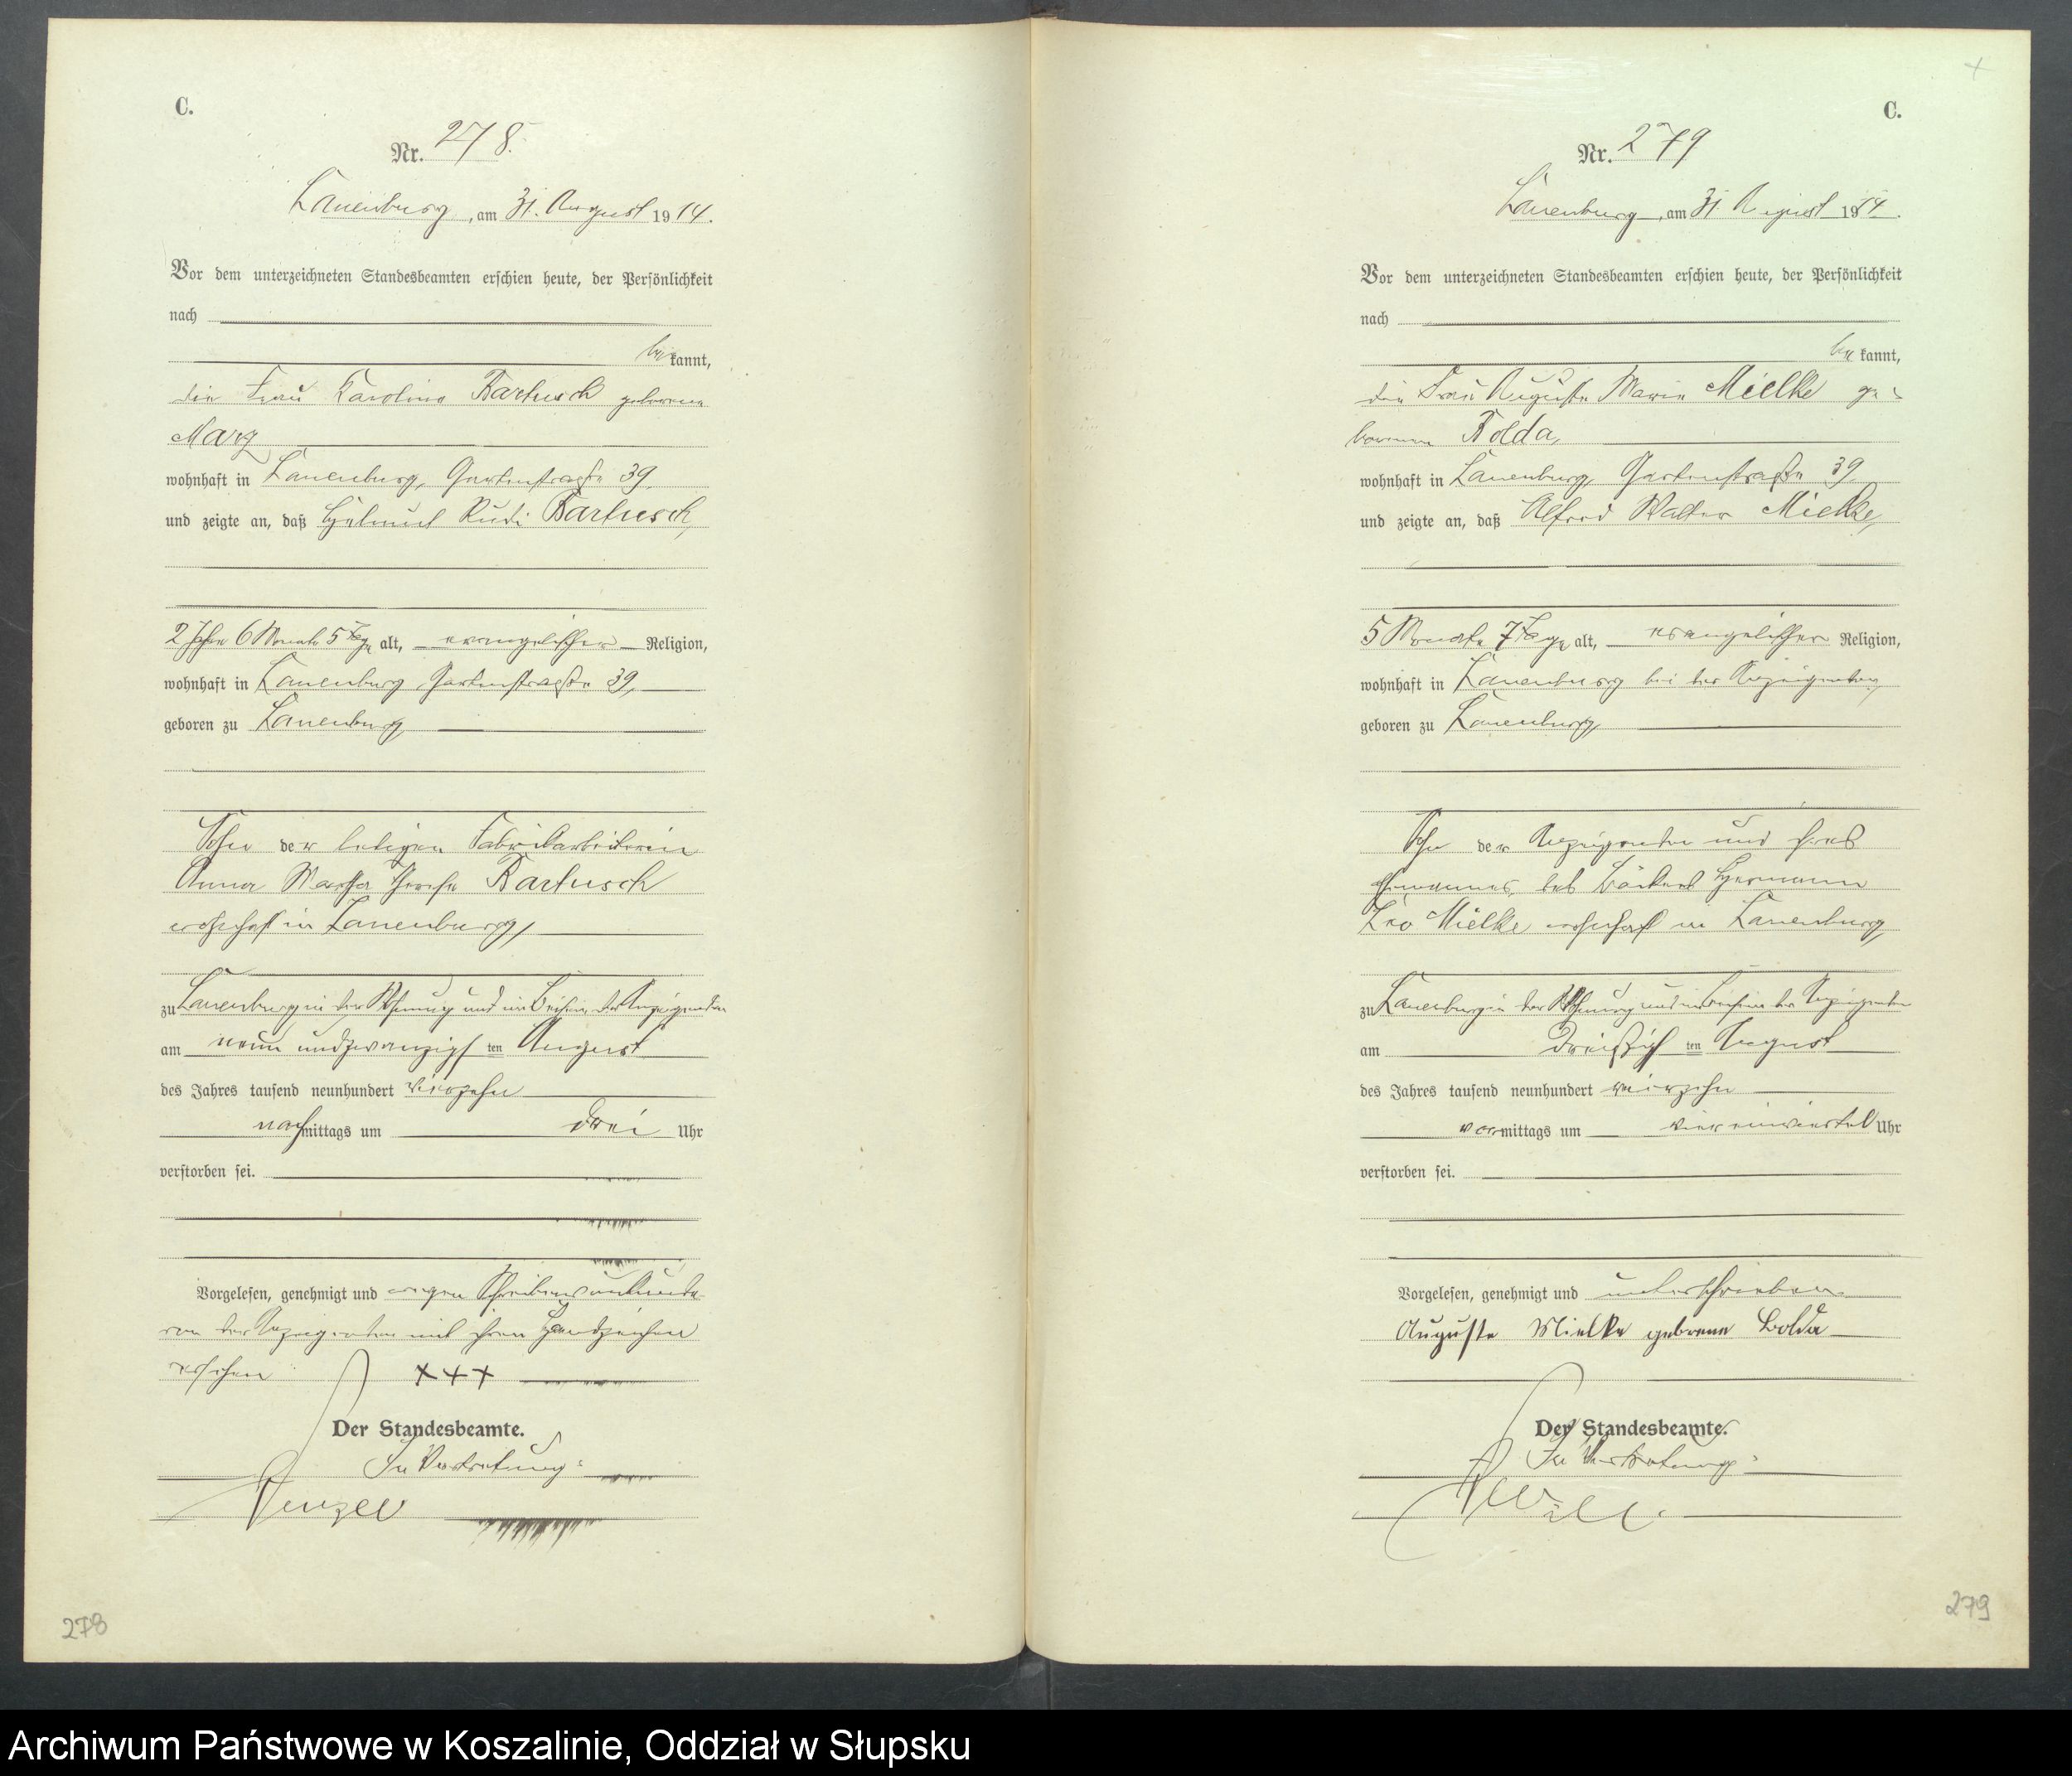 C.
Nr. 278.
Lauenburg, am 31. August 1914.
Vor dem unterzeichneten Standesbeamten erschien heute, der Persönlichkeit
nach
bekannt,
die Frau Karoline Bartusch geborene
Marg
wohnhaft in Lauenburg, Gartenstraße 39,
und zeigte an, daß Helmut Rudi Bartusch,
2 Jahre 6 Monate 5 Tage alt, evangelischer Religion,
wohnhaft in Lauenburg, Gartenstraße 39,
geboren zu Lauenburg,
Sohn der ledigen Fabrikarbeiterin
Anna Martha Bartusch
wohnhaft in Lauenburg,
zu Lauenburg in der Wohnung und im Beisein der Anzeigenden
am neun und zwanzigsten August
des Jahres tausend neunhundert vierzehn
nachmittags um drei Uhr
verstorben sei.
Vorgelesen, genehmigt und wegen Schreibensunkunde
von der Anzeigenden mit ihren Handzeichen
versehen +++
Der Standesbeamte.
In Vertretung:
278
C.
Nr. 279
Lauenburg, am 31. August 1914.
Vor dem unterzeichneten Standesbeamten erschien heute, der Persönlichkeit
nach
bekannt,
die Frau Auguste Marie Mielke ge-
borene Bolda,
wohnhaft in Lauenburg, Gartenstraße 39,
und zeigte an, daß Alfred Walter Mielke,
5 Monate 7 Tage alt, evangelischer Religion,
wohnhaft in Lauenburg bei der Anzeigenden,
geboren zu Lauenburg,
Sohn der Anzeigenden und ihres
Ehemannes, des Bäckers Hermann
Leo Mielke wohnhaft in Lauenburg,
zu Lauenburg in der Wohnung und im Beisein der Anzeigenden
am dreißigsten August
des Jahres tausend neunhundert vierzehn
vormittags um vier einviertel Uhr
verstorben sei.
Vorgelesen, genehmigt und unterschrieben
Auguste Mielke geborene Bolda
Der Standesbeamte.
In Vertretung:
279
Archiwum Państwowe w Koszalinie, Oddział w Słupsku